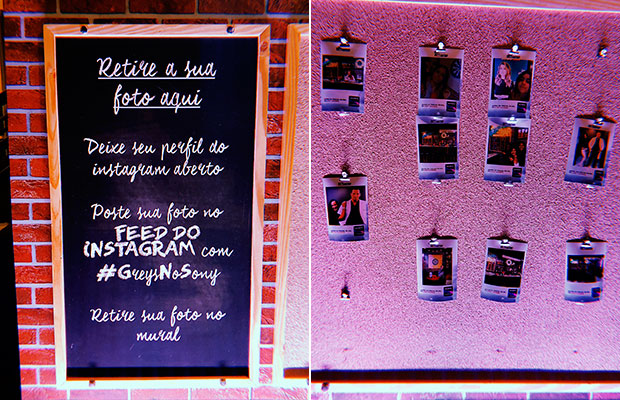 Retire a sua
foto aqui
Deixe seu perfil do
instagram aberto
Poste sua foto no
FEED DO
INSTAGRAM com
#GreysNoSony
Retire sua foto no
mural